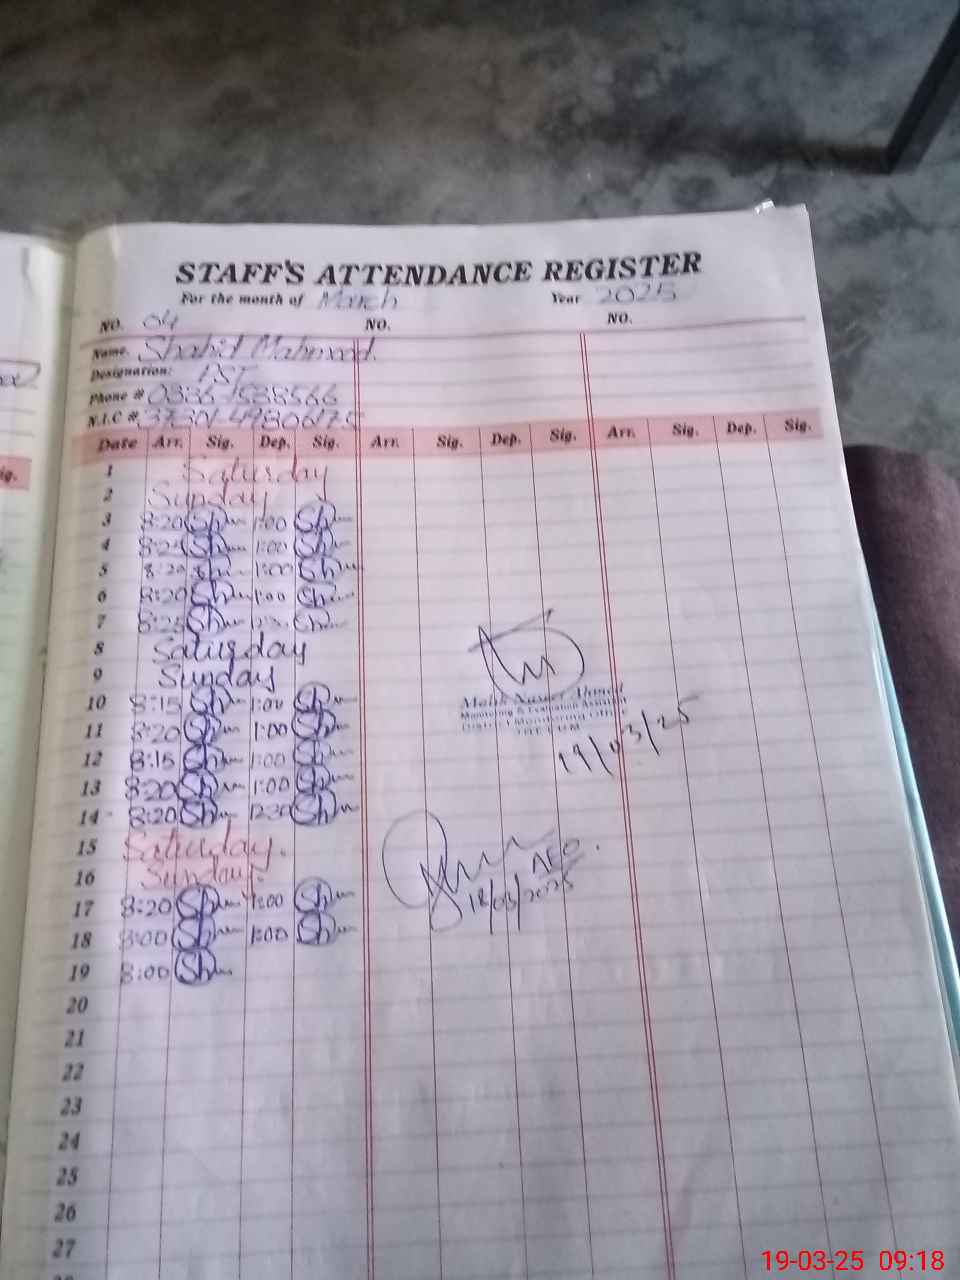 STAFF'S ATTENDANCE REGISTER
For the month of March Year 2025
NO. 04 NO. NO.
Name. Shahid Mahmood.
Designation: PST
Phone #
N.I.C #
Date Arr. Sig. Dep. Sig. Arr. Sig. Dep. Sig. Arr. Sig. Dep. Sig.
ig.
1 Saturday
2 Sunday
3 8:20 1:00
4 8:25 1:00
5 8:20 1:00
6 8:20 1:00
7
8 Saturday
9 Sunday
10 8:15 1:00
11 8:20 1:00
12 8:15 1:00
13 8:20 1:00
14 8:20 12:30
15 Saturday.
16 Sunday.
17 8:20 1:00
18 8:00 1:00
19 8:00
20
21
22
23
24
25
26
27
Malik Naseer Ahmed
Monitoring & Evaluation Assistant
District Monitoring Officer
JHELUM
19/03/25
AEO.
18/03/2025
19-03-25 09:18